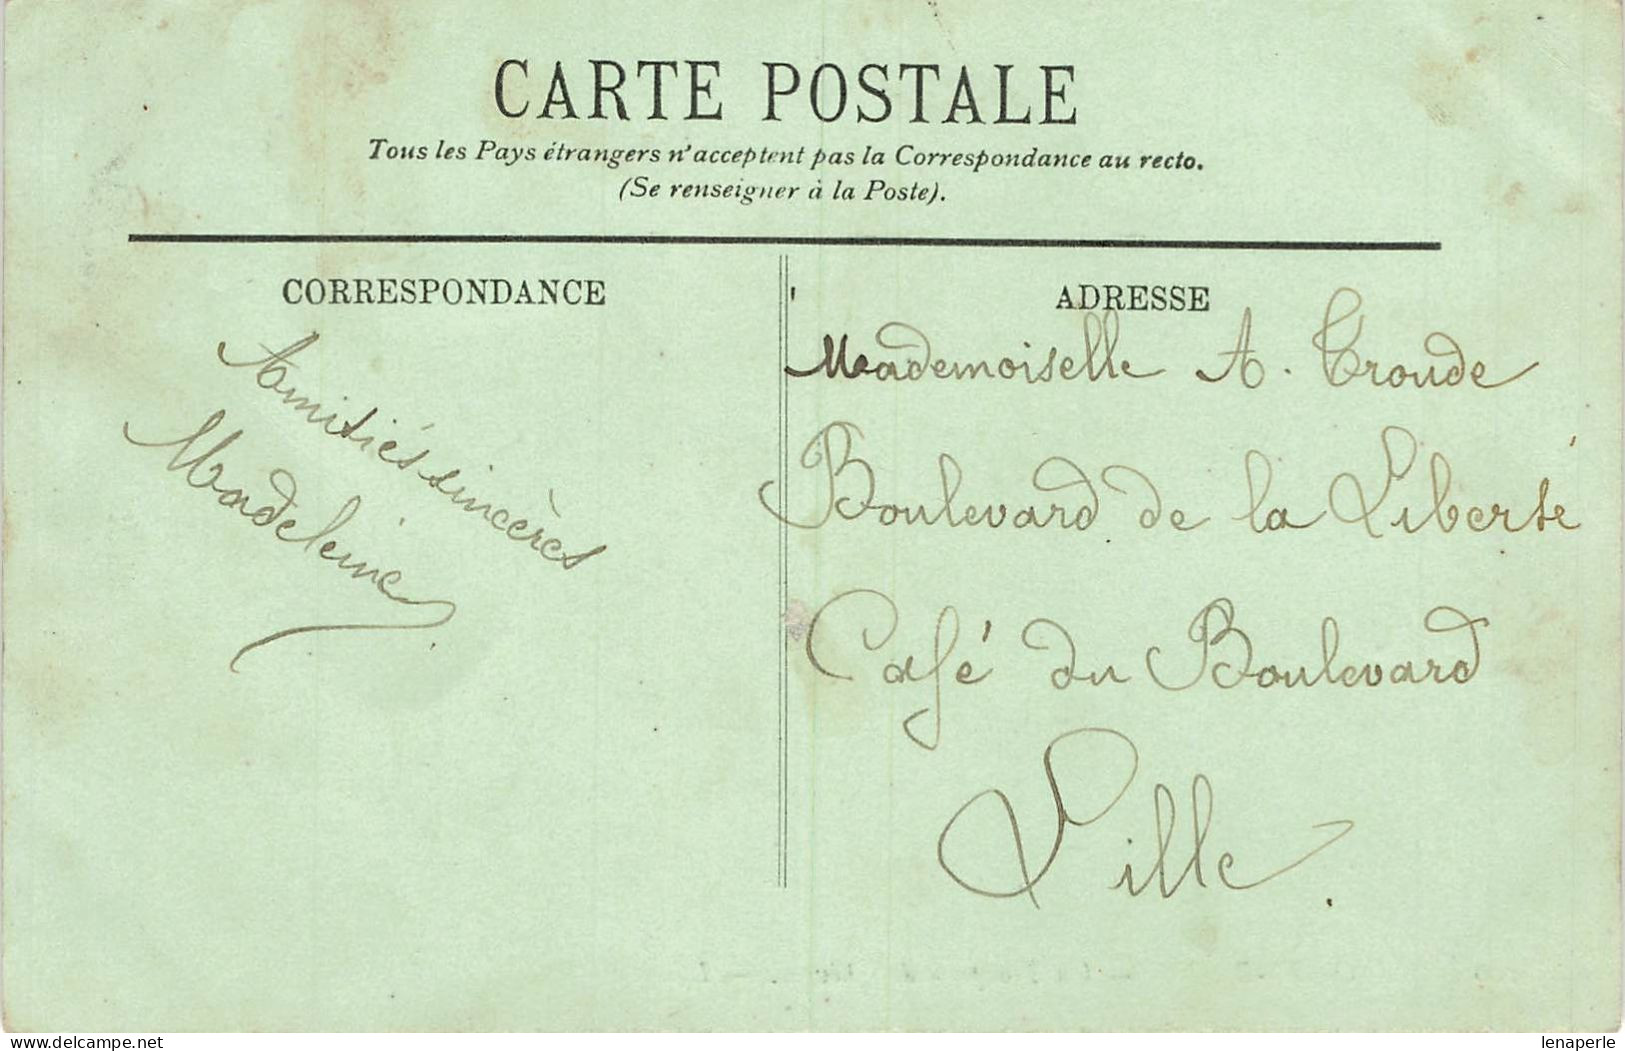 CARTE POSTALE
Tous les Pays étrangers n'acceptent pas la Correspondance au recto.
(Se renseigner à la Poste).
CORRESPONDANCE
Amitiés sincères
Madeleine
ADRESSE
Mademoiselle A. Troude
Boulevard de la Liberté
Café du Boulevard
Lille.
delcampe.net
lenaperle